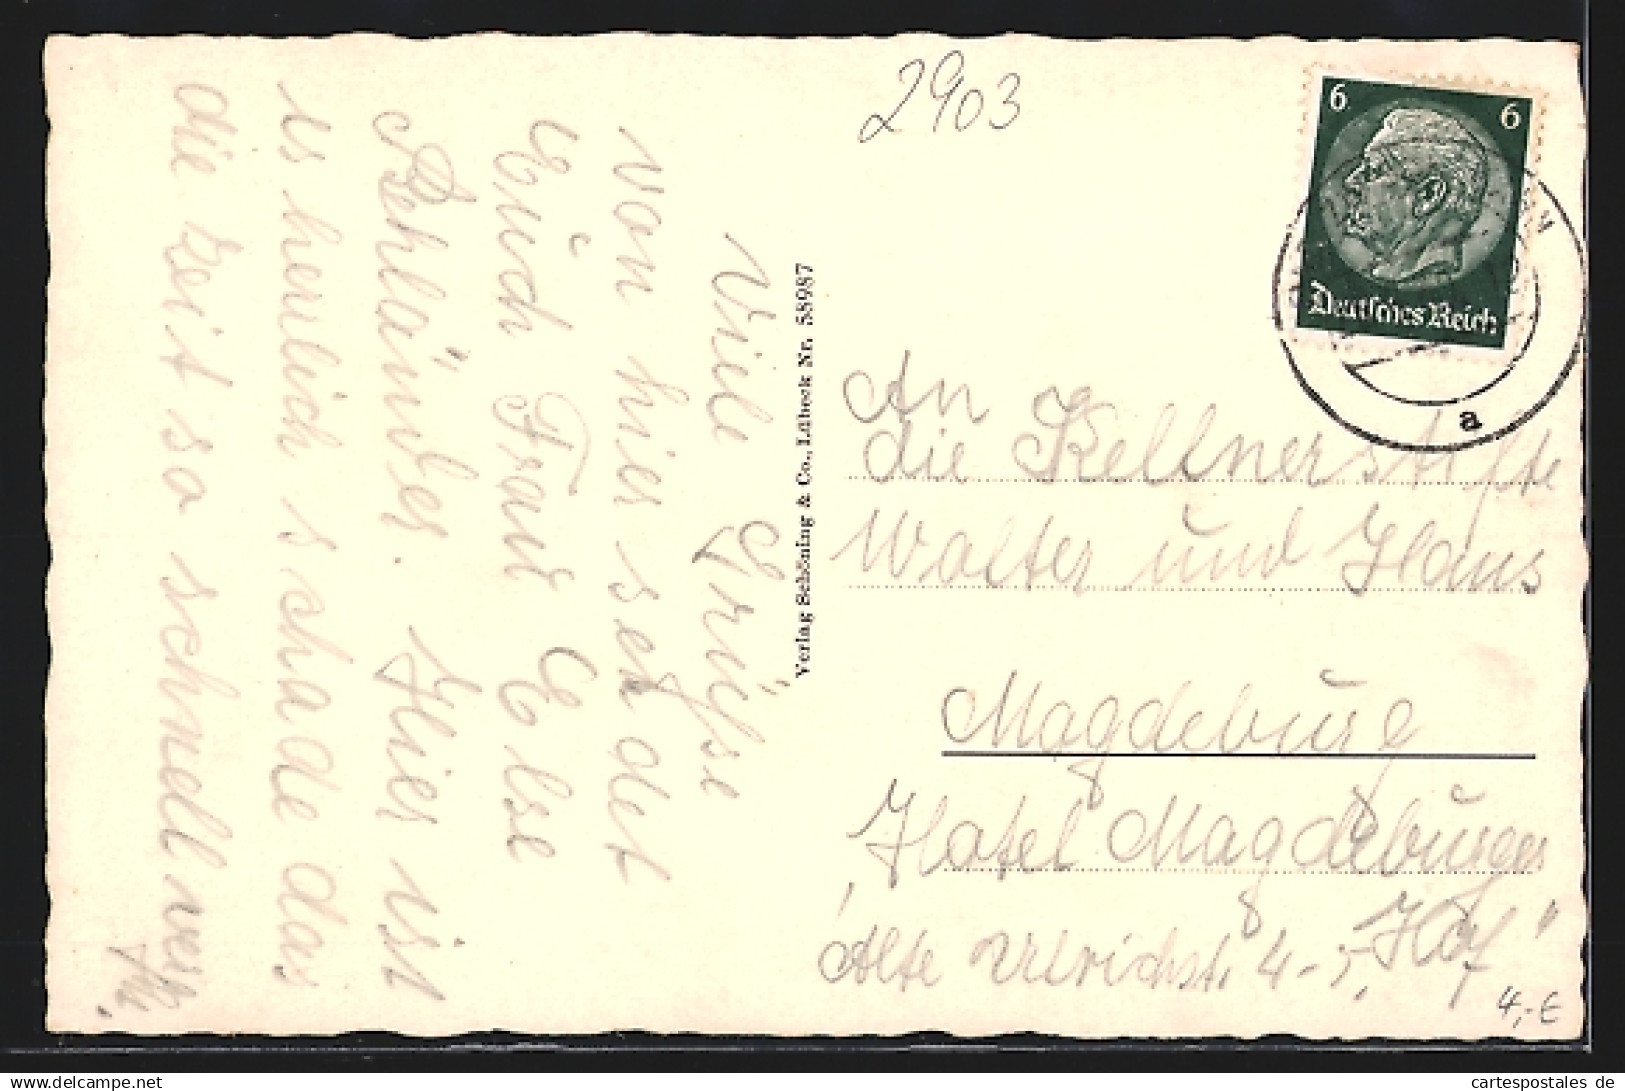 2903
6 6
Deutsches Reich
a
Viele Grüsse
von hier sendet
Euch Frau Else
Hier ist
es herrlich schade das
die Zeit so schnell
Verlag Schöning & Co., Lübeck Nr. 58987
An
die Kellnerstifte
Walter und Hans
Magdeburg
Hotel Magdeburger
Hof"
Alte Ulrichstr. 4-5,
4,-€
cartespostales de